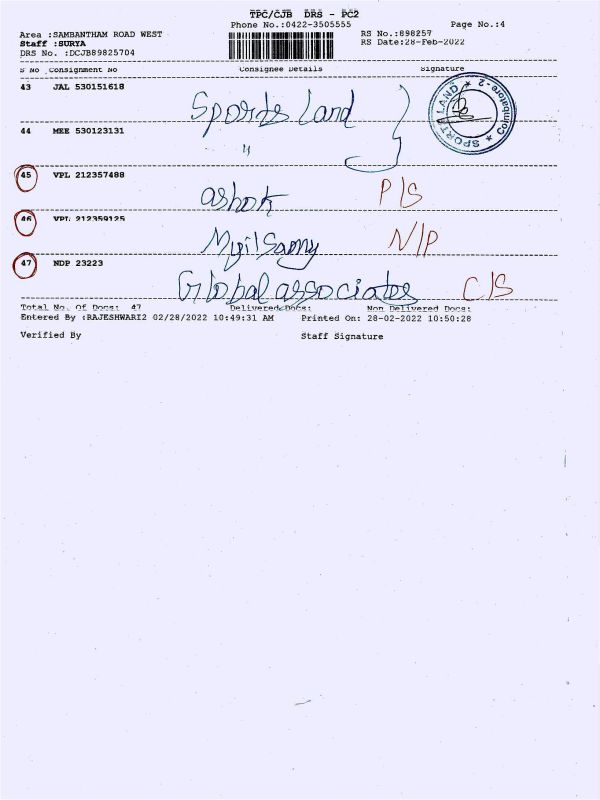 TPC/CJB DRS - PC2
Phone No.:0422-3505555 Page No.:4
Area :SAMBANTHAM ROAD WEST RS No.:898257
Staff :SURYA RS Date:28-Feb-2022
DRS No. :DCJB89825704
S No Consignment No Consignee Details Signature
43 JAL 530151618 Sports Land
SPORT LAND ★ Coimbatore-2 ★
44 MEE 530123131 "
45 VPL 212357488 ashok P/S
46 VPL 212359125 Mylsamy N/P
47 NDP 23223 Global associates C/S
Total No. Of Docs: 47 Delivered Docs: Non Delivered Docs:
Entered By :RAJESHWARI2 02/28/2022 10:49:31 AM Printed On: 28-02-2022 10:50:28
Verified By Staff Signature